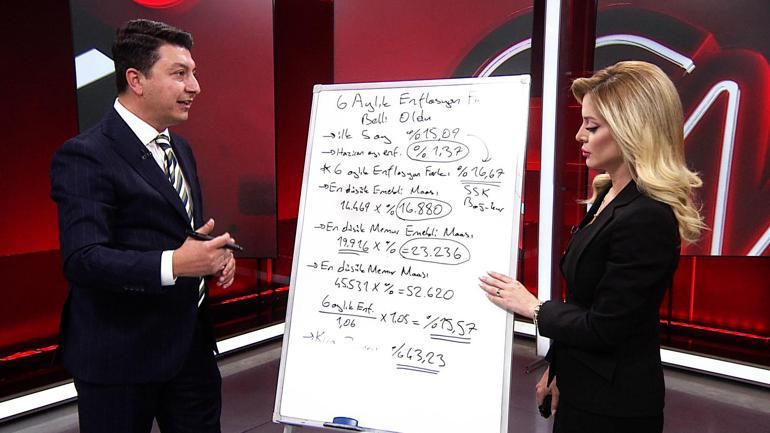 6 Aylık Enflasyon Fa
Belli Oldu
→ ilk 5ay %15,09
→ Haziran ayı enf. %1,37
* 6 aylık Enflasyon Farkı %16,67
SSK
Bağ-kur
→ En düşük Emekli Maaşı
14.469 x % 16.880
→ En düşük Memur Emekli Maaşı
19.916 x % = 23.236
→ En düşük Memur Maaşı
45.531 x % = 52.620
6 aylık Enf.
1,06 x 1.05 = %15,57
→ %43,23